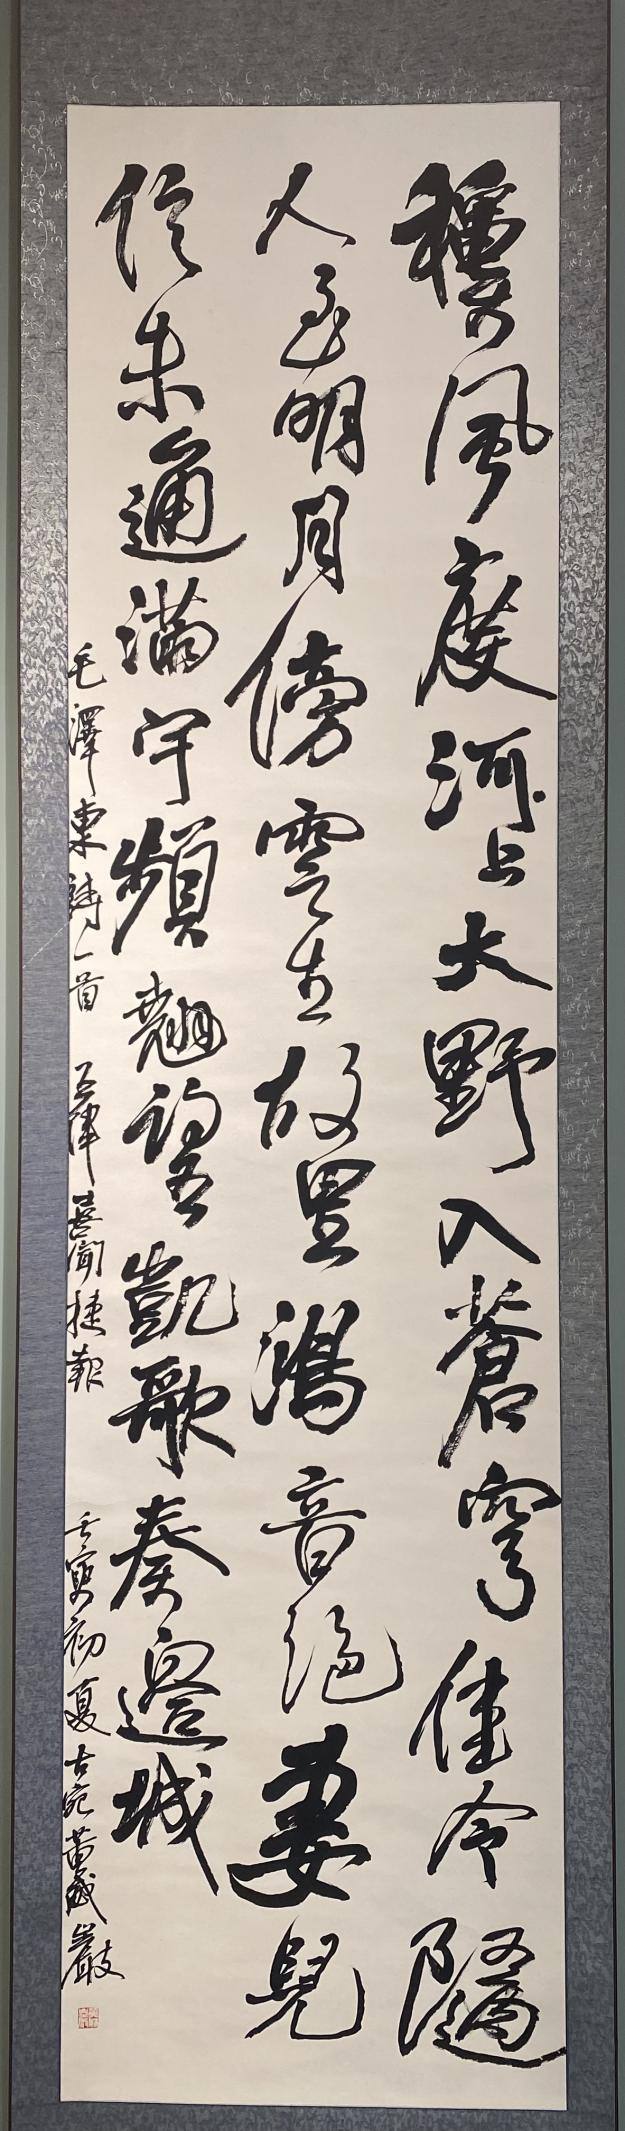 龝風度河上大野入蒼穹佳令隨
人至明月傍雲生故里鴻音絕妻兒
信未通滿宇頻翹望凱歌奏邊城
毛澤東詩一首 五律 喜聞捷報 壬寅初夏古宛黃成巖